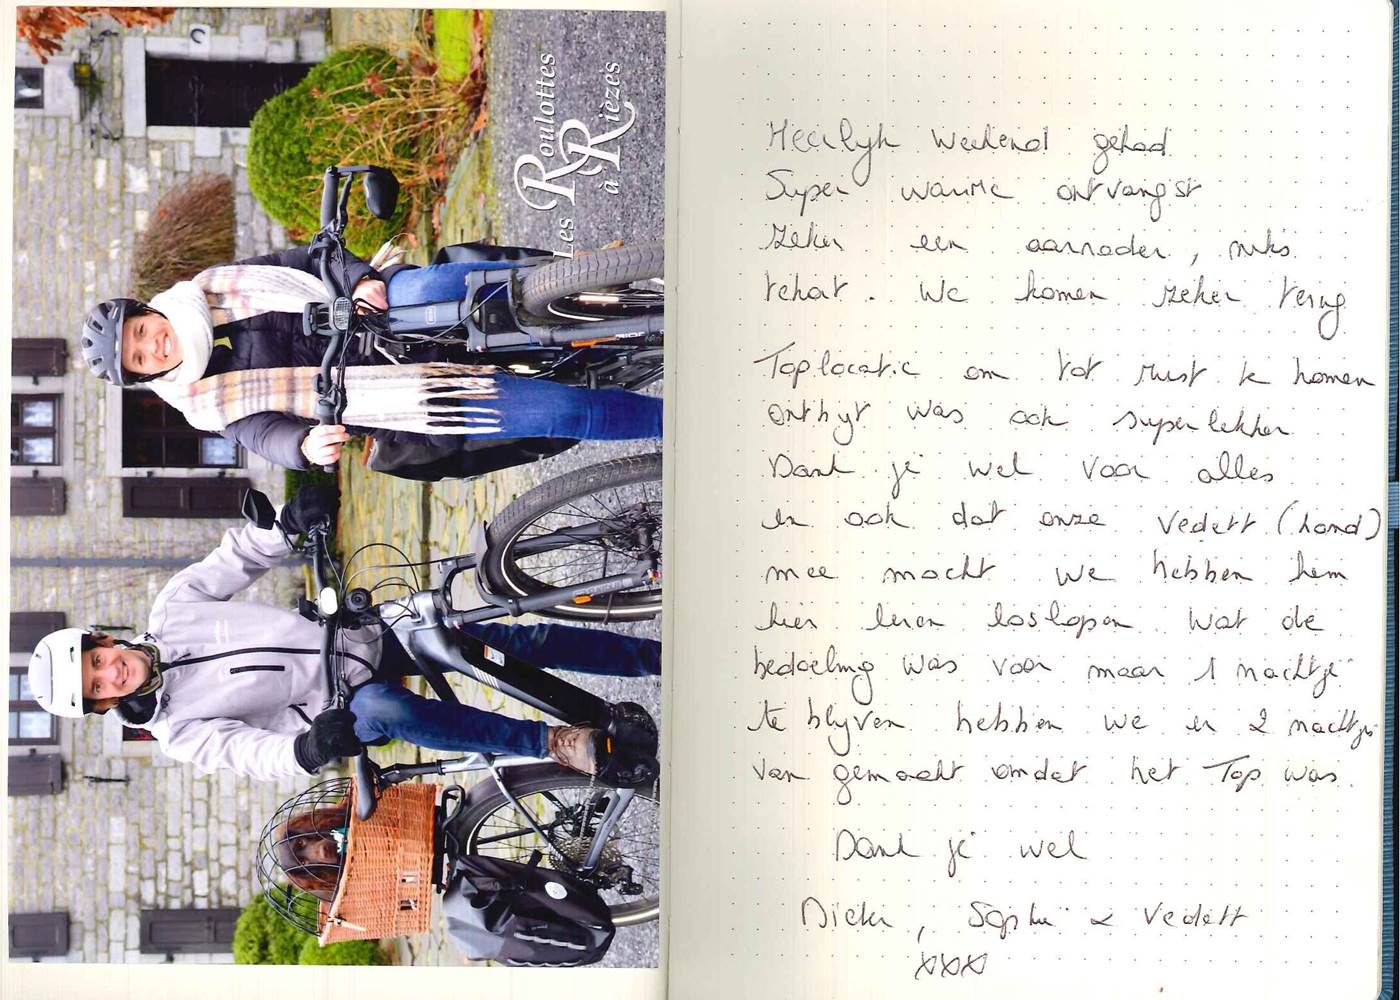 Les Roulottes
à Rièzes
Heerlijk weekend gehad
Super warme ontvangst
zeker een aanrader, niks
te kort. We komen zeker terug
Toplocatie om tot rust te komen
ontbijt was ook superlekker
Dank je wel voor alles
en ook dat onze Vedett (hond)
mee mocht we hebben hem
hier leren loslopen. Wat de
bedoeling was voor maar 1 nachtje
te blijven hebben we er 2 nachtjes
van gemaakt omdat het Top was.
Dank je wel
Dieter, Sophie & Vedett
xxx